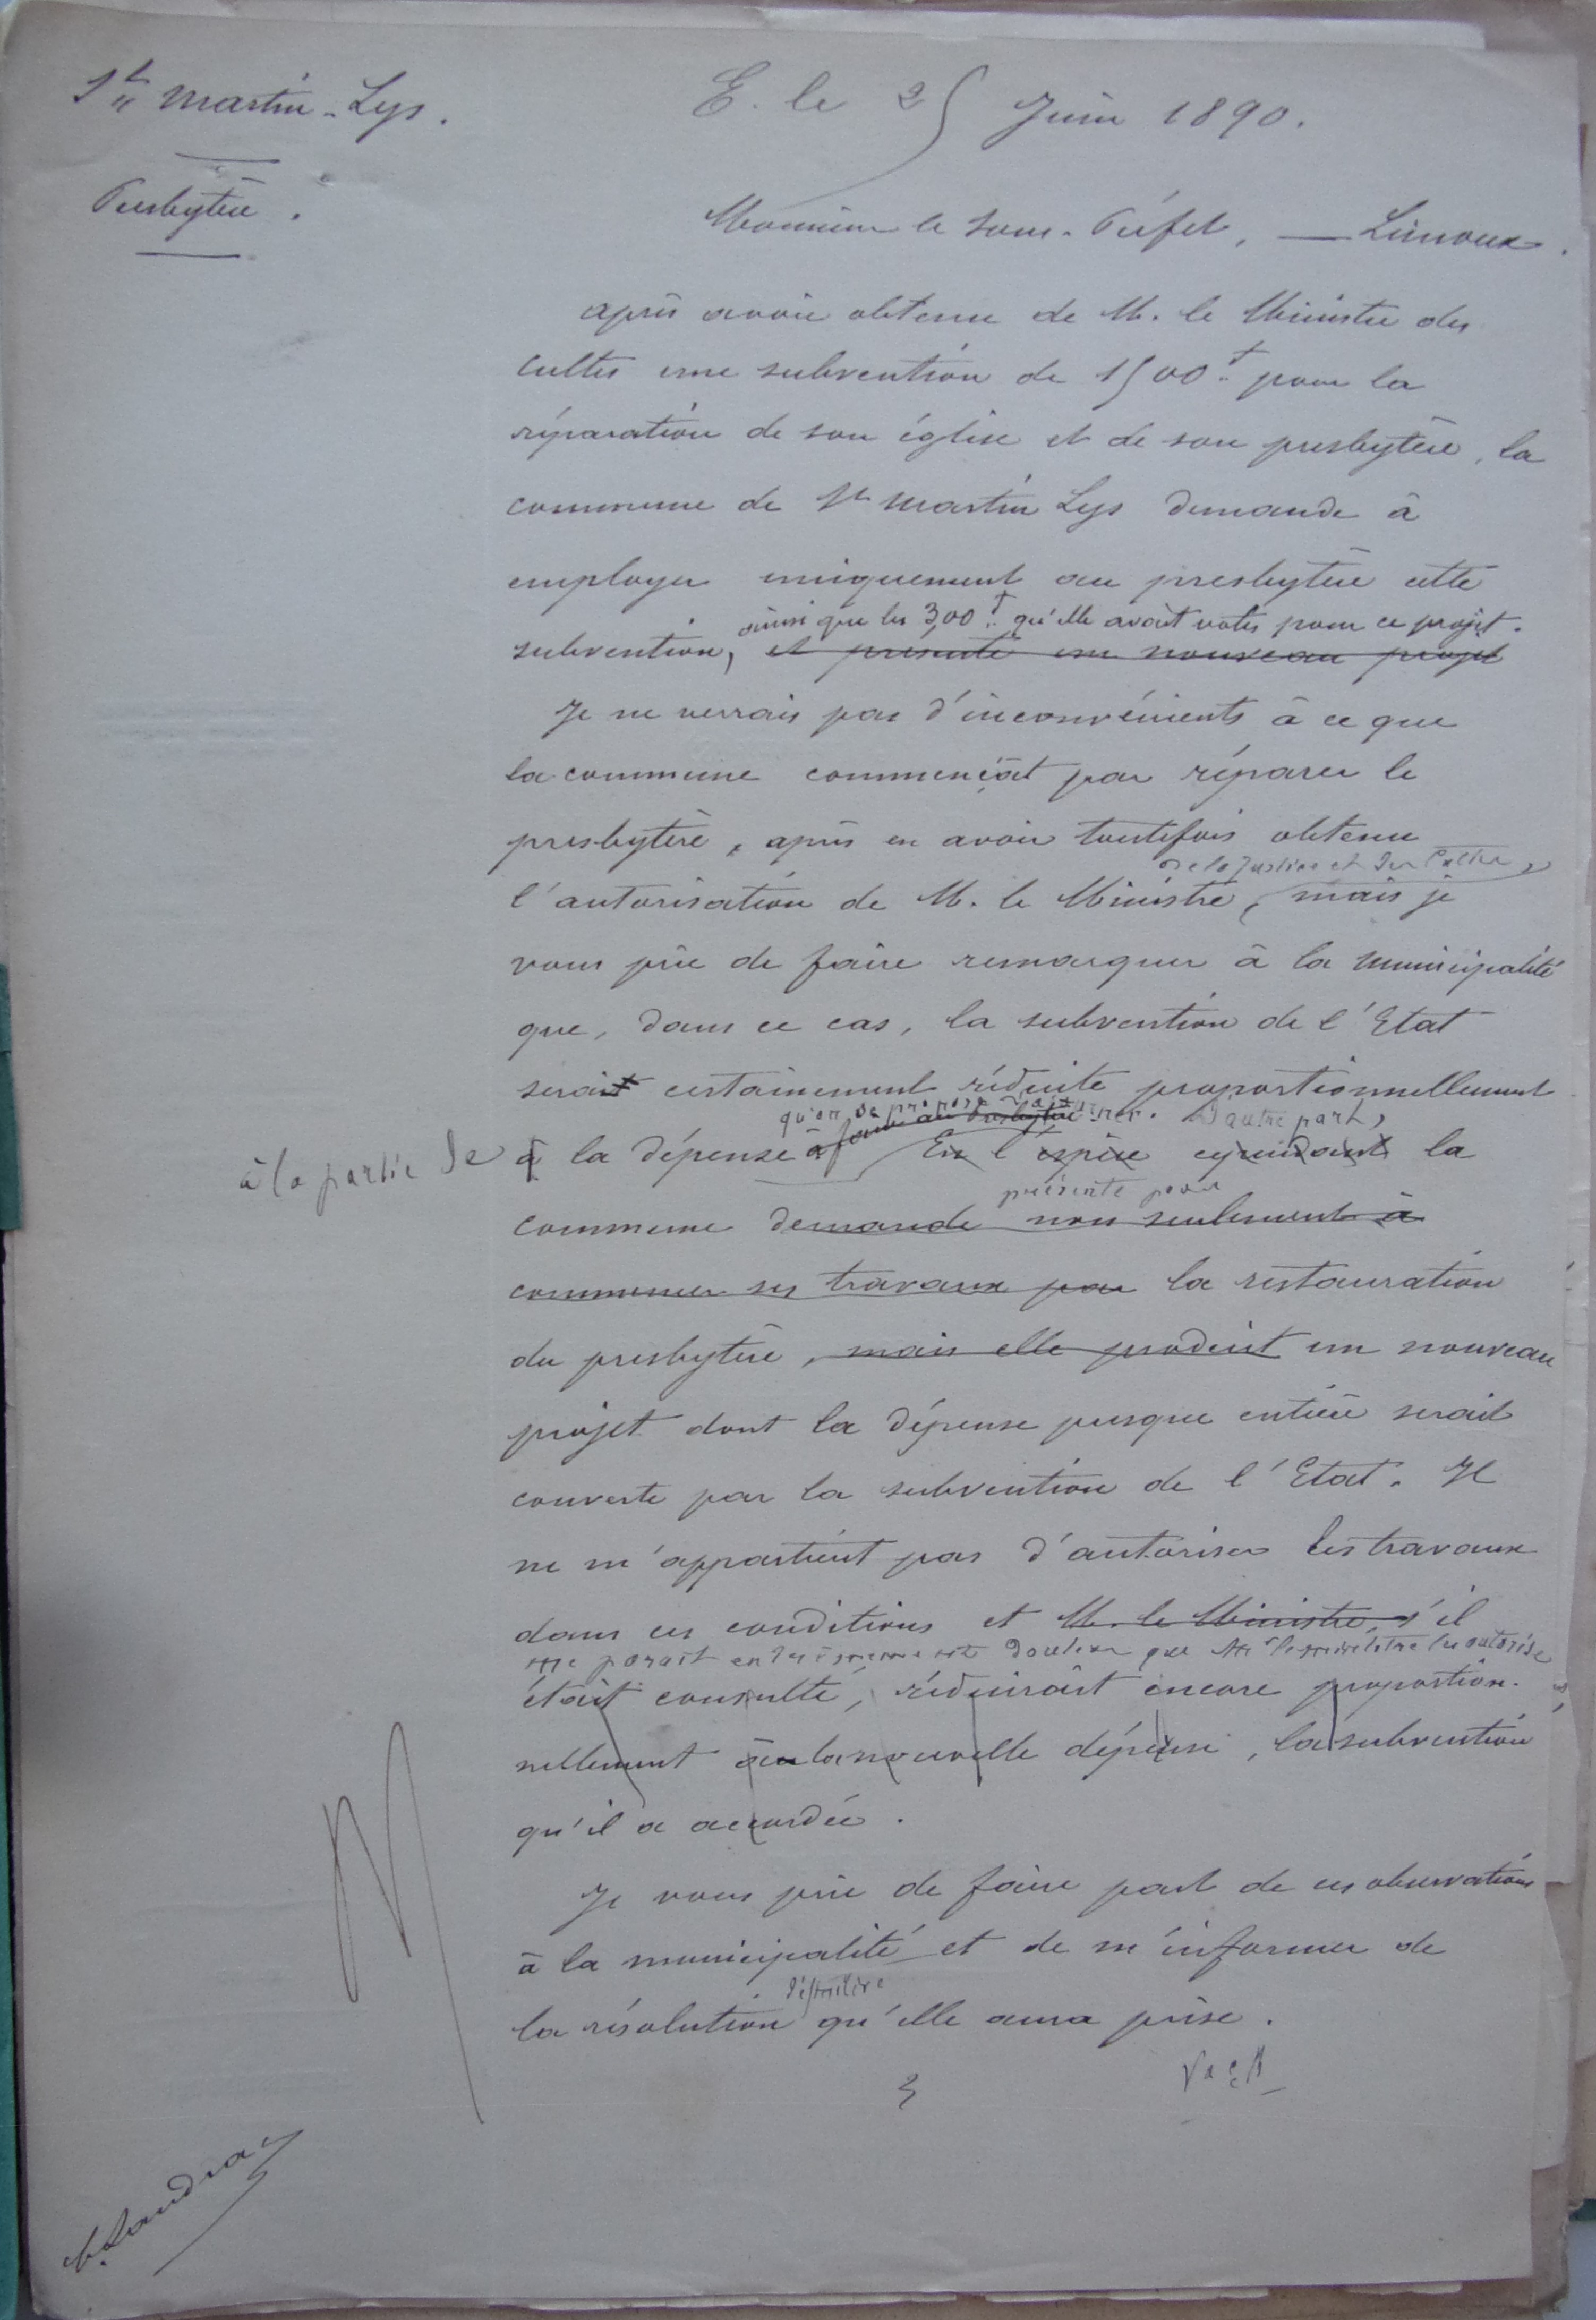 St Martin-Lys.
Presbytère.
E. le 25 Juin 1890.
Monsieur le Sous-Préfet, — Limoux.
après avoir obtenu de M. le Ministre des
cultes une subvention de 1500f. pour la
réparation de son église et de son presbytère, la
commune de St Martin Lys demande à
employer uniquement au presbytère cette
ainsi que les 300f. qu'elle avait votés pour ce projet.
subvention, et présente un nouveau projet
Je ne verrais pas d'inconvénients à ce que
la commune commençât par réparer le
presbytère, après en avoir toutefois obtenu
de la Justice et des Cultes,
l'autorisation de M. le Ministre, mais je
vous prie de faire remarquer à la municipalité
que, dans ce cas, la subvention de l'Etat
serait certainement réduite proportionnellement
qu'on se propose d'ajourner. D'autre part,
à la partie de à la dépense à faire au presbytère. En l'espèce cependant la
présente pour
commune demande non seulement à
commencer ses travaux par la restauration
du presbytère, mais elle produit un nouveau
projet dont la dépense presque entière serait
couverte par la subvention de l'Etat. Il
ne m'appartient pas d'autoriser les travaux
dans ces conditions et M. le Ministre, s'il
me parait extrêmement douteux que Mr le ministre les autorise
était consulté, réduirait encore proportion-
nellement à la nouvelle dépense, la subvention
qu'il a accordée.
Je vous prie de faire part de ces observations
à la municipalité et de m'informer de
définitive
la résolution qu'elle aura prise.